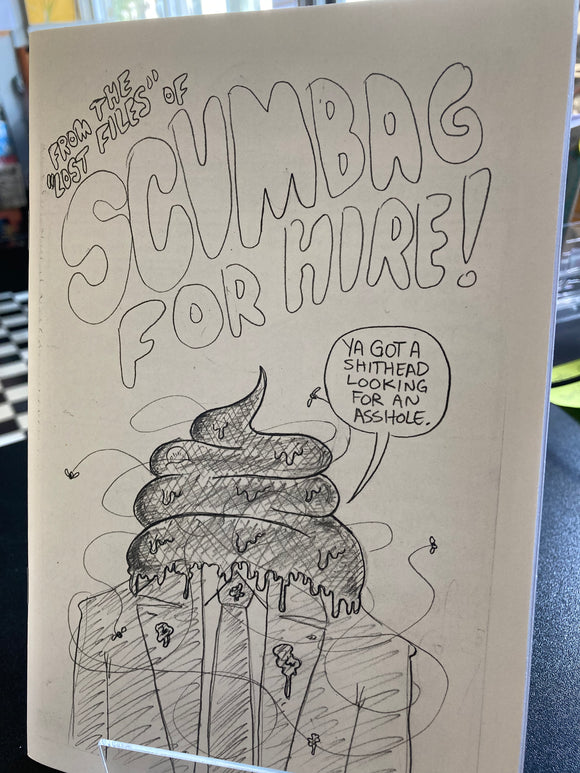 FROM THE
"LOST FILES" OF
SCUMBAG
FOR HIRE!
YA GOT A
SHITHEAD
LOOKING
FOR AN
ASSHOLE.